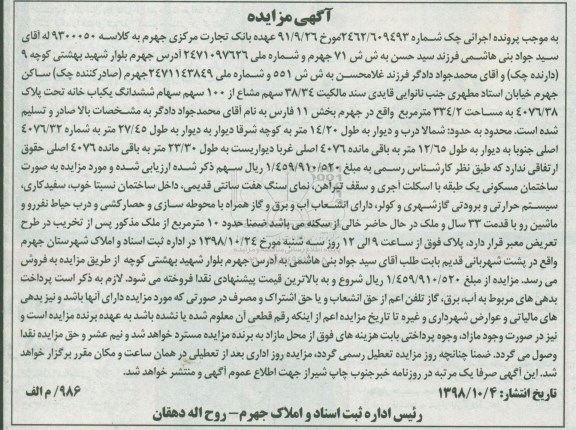 آگهی مزایده
به موجب پرونده اجرائی چک شماره ۲۴۶۲/۶۰۹۴۹۳مورخ ۹۱/۹/۲۶ عهده بانک تجارت مرکزی جهرم به کلاسه ۹۳۰۰۰۵۰ له آقای
سید جواد بنی هاشمی فرزند سید حسن به ش ش ۷۱ جهرم و شماره ملی ۲۴۷۱۰۹۷۶۲۶ آدرس جهرم بلوار شهید بهشتی کوچه ۹
(دارنده چک) و آقای محمدجواد دادگر فرزند غلامحسن به ش ش ۵۵۱ و شماره ملی ۲۴۷۱۱۴۳۸۴۹جهرم (صادرکننده چک) ساکن
جهرم خیابان استاد مطهری جنب نانوایی قایدی سند مالکیت ۳۸/۳۴ سهم مشاع از ۱۰۰ سهم سهام ششدانگ یکباب خانه تحت پلاک
۴۰۷۶/۳۸ به مساحت ۳۳۴/۲ مترمربع واقع در جهرم بخش ۱۱ فارس به نام آقای محمدجواد دادگر به مشخصات بالا صادر و تسلیم
شده است. محدود به حدود: شمالا درب و دیوار به طول ۱۴/۲۰ متر به کوچه شرقا دیوار به دیوار به طول ۲۷/۴۵ متر به شماره ۴۰۷۶/۳۲
اصلی جنوبا به دیوار به طول ۱۲/۶۵ متر به باقی مانده ۴۰۷۶ اصلی غربا دیواریست به طول ۲۳/۳۰ متر به باقی مانده ۴۰۷۶ اصلی حقوق
ارتفاقی ندارد که طبق نظر کارشناس رسمی به مبلغ ۱/۴۵۹/۹۱۰/۵۲۰ ریال سهم ذکر شده ارزیابی شده و مورد مزایده به صورت
ساختمان مسکونی یک طبقه با اسکلت آجری و سقف تیرآهن، نمای سنگ هفت سانتی قدیمی، داخل ساختمان نسبتا خوب، سفیدکاری،
سیستم حرارتی و برودتی گازشهری و کولر، دارای انشعاب آب و برق و گاز همراه با محوطه سازی و حصارکشی و درب حیاط نفررو و
ماشین رو با قدمت ۳۳ سال و ملک در حال حاضر خالی از سکنه می باشد ضمنا حدود ۱۰ مترمربع از ملک مذکور پس از تخریب در طرح
تعریض معبر قرار دارد، پلاک فوق از ساعت ۹ الی ۱۲ روز سه شنبه مورخ ۱۳۹۸/۱۰/۲۴ در اداره ثبت اسناد و املاک شهرستان جهرم
واقع در پشت شهربانی قدیم بابت طلب آقای سید جواد بنی هاشمی به آدرس جهرم بلوار شهید بهشتی کوچه از طریق مزایده به فروش
می رسد. مزایده از مبلغ ۱/۴۵۹/۹۱۰/۵۲۰ ریال شروع و به بالاترین قیمت پیشنهادی نقدا فروخته می شود. لازم به ذکر است پرداخت
بدهی های مربوط به آب، برق، گاز تلفن اعم از حق انشعاب و یا حق اشتراک و مصرف در صورتی که مورد مزایده دارای آنها باشد و نیز بدهی
های مالیاتی و عوارض شهرداری و غیره تا تاریخ مزایده اعم از اینکه رقم قطعی آن معلوم شده یا نشده باشد به عهده برنده مزایده است و
نیز در صورت وجود مازاد، وجوه پرداختی بابت هزینه های فوق از محل مازاد به برنده مزایده مسترد خواهد شد و نیم عشر و حق مزایده نقدا
وصول می گردد. ضمنا چنانچه روز مزایده تعطیل رسمی گردد، مزایده روز اداری بعد از تعطیلی در همان ساعت و مکان مقرر برگزار خواهد
شد. این آگهی صرفا یک مرتبه در روزنامه خبرجنوب چاپ شیراز جهت اطلاع عموم آگهی و منتشر خواهد شد.
تاریخ انتشار: ۱۳۹۸/۱۰/۴ ۹۸۶/ م الف
رئیس اداره ثبت اسناد و املاک جهرم– روح اله دهقان